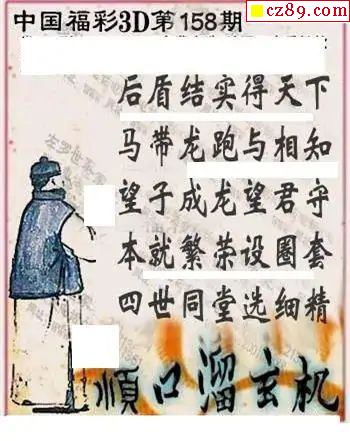 cz89.com
中国福彩3D第158期
后盾结实得天下
马带龙跑与相知
望子成龙望君守
本就繁荣设圈套
四世同堂选细精
顺口溜玄机